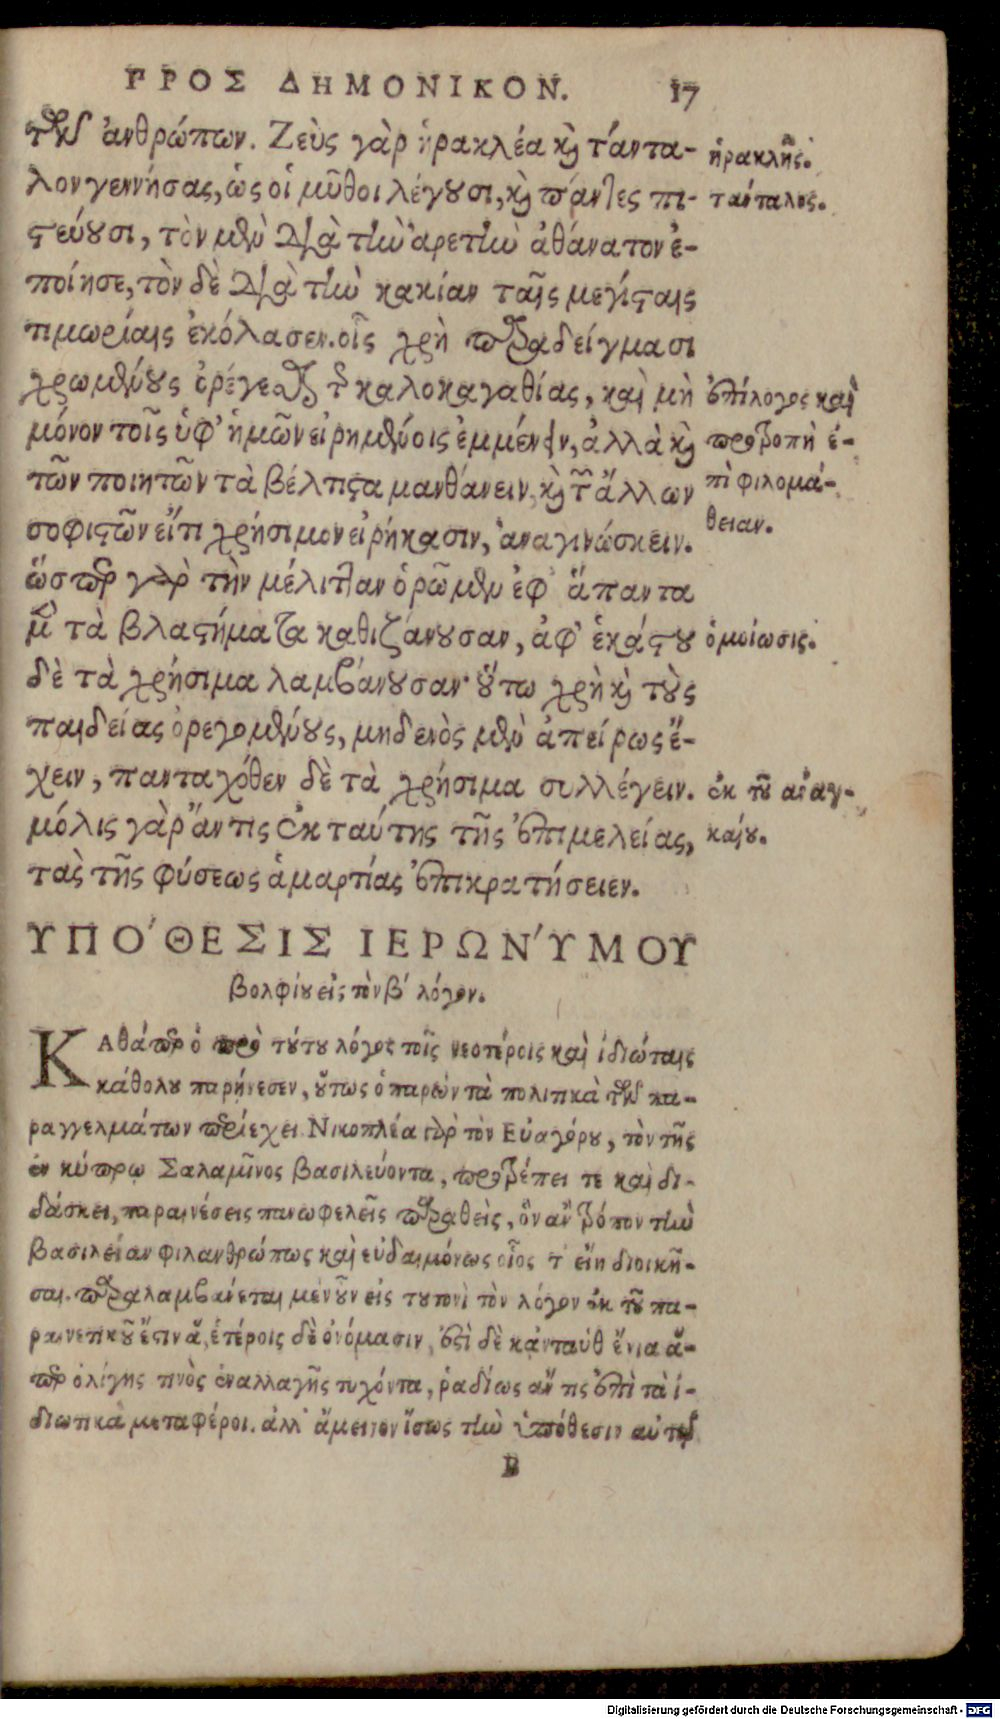 ΠΡΟΣ ΔΗΜΟΝΙΚΟΝ. 17
τῶν ἀνθρώπων. Ζεὺς γὰρ ἡρακλέα καὶ τάντα-
λον γεννήσας, ὡς οἱ μῦθοι λέγουσι, καὶ πάντες πι-
στεύουσι, τὸν μὲν διὰ τὴν ἀρετὴν ἀθάνατον ἐ-
ποίησε, τὸν δὲ διὰ τὴν κακίαν ταῖς μεγίσταις
τιμωρίαις ἐκόλασεν. οἷς χρὴ παραδείγμασι
χρωμένους ὀρέγεσθαι τῆς καλοκαγαθίας, καὶ μὴ
μόνον τοῖς ὑφ' ἡμῶν εἰρημένοις ἐμμένειν, ἀλλὰ καὶ
τῶν ποιητῶν τὰ βέλτιστα μανθάνειν, καὶ τῶν ἄλλων
σοφιστῶν εἴ τι χρήσιμον εἰρήκασιν, ἀναγινώσκειν.
ὥσπερ γὰρ τὴν μέλιτταν ὁρῶμεν ἐφ' ἅπαντα
μὲν τὰ βλαστήματα καθιζάνουσαν, ἀφ' ἑκάστου
δὲ τὰ χρήσιμα λαμβάνουσαν· οὕτω χρὴ καὶ τοὺς
παιδείας ὀρεγομένους, μηδενὸς μὲν ἀπείρως ἔ-
χειν, πανταχόθεν δὲ τὰ χρήσιμα συλλέγειν.
μόλις γὰρ ἄν τις ἐκ ταύτης τῆς ἐπιμελείας,
τὰς τῆς φύσεως ἁμαρτίας ἐπικρατήσειεν.
ἡρακλῆς.
τάνταλος.
ἐπίλογος καὶ
προτροπὴ ἐ-
πὶ φιλομά-
θειαν.
ὁμοίωσις.
ἐκ τοῦ ἀναγ-
καίου.
ΥΠΟ´ΘΕΣΙΣ ΙΕΡΩΝ´ΥΜΟΥ
βολφίου εἰς τὸν β' λόγον.
ΚΑθάπερ ὁ πρὸ τούτου λόγος τοῖς νεοτέροις καὶ ἰδιώταις
κάθολου παρῄνεσεν, οὕτως ὁ παρὼν τὰ πολιτικὰ τῶν πα-
ραγγελμάτων περιέχει. Νικοκλέα γὰρ τὸν Εὐαγόρου, τὸν τῆς
ἐν κύπρῳ Σαλαμῖνος βασιλεύοντα, προτρέπει τε καὶ δι-
δάσκει, παραινέσεις πανωφελεῖς παραθεὶς, ὃν ἂν τρόπον τὴν
βασιλείαν φιλανθρώπως καὶ εὐδαιμόνως οἷός τ' εἴη διοικῆ-
σαι. παραλαμβάνεται μὲν οὖν εἰς τουτονὶ τὸν λόγον ἐκ τοῦ πα-
ραινετικοῦ ἔστιν ἅ, ἑτέροις δὲ ὀνόμασιν, ἔστι δὲ κἀνταῦθ' ἔνια ἅ-
περ ὀλίγης τινὸς ἐναλλαγῆς τυχόντα, ῥᾳδίως ἄν τις ἐπὶ τὰ ἰ-
διωτικὰ μεταφέροι. ἀλλ' ἄμεινον ἴσως τὴν ὑπόθεσιν αὐτοῦ
B
Digitalisierung gefördert durch die Deutsche Forschungsgemeinschaft - DFG